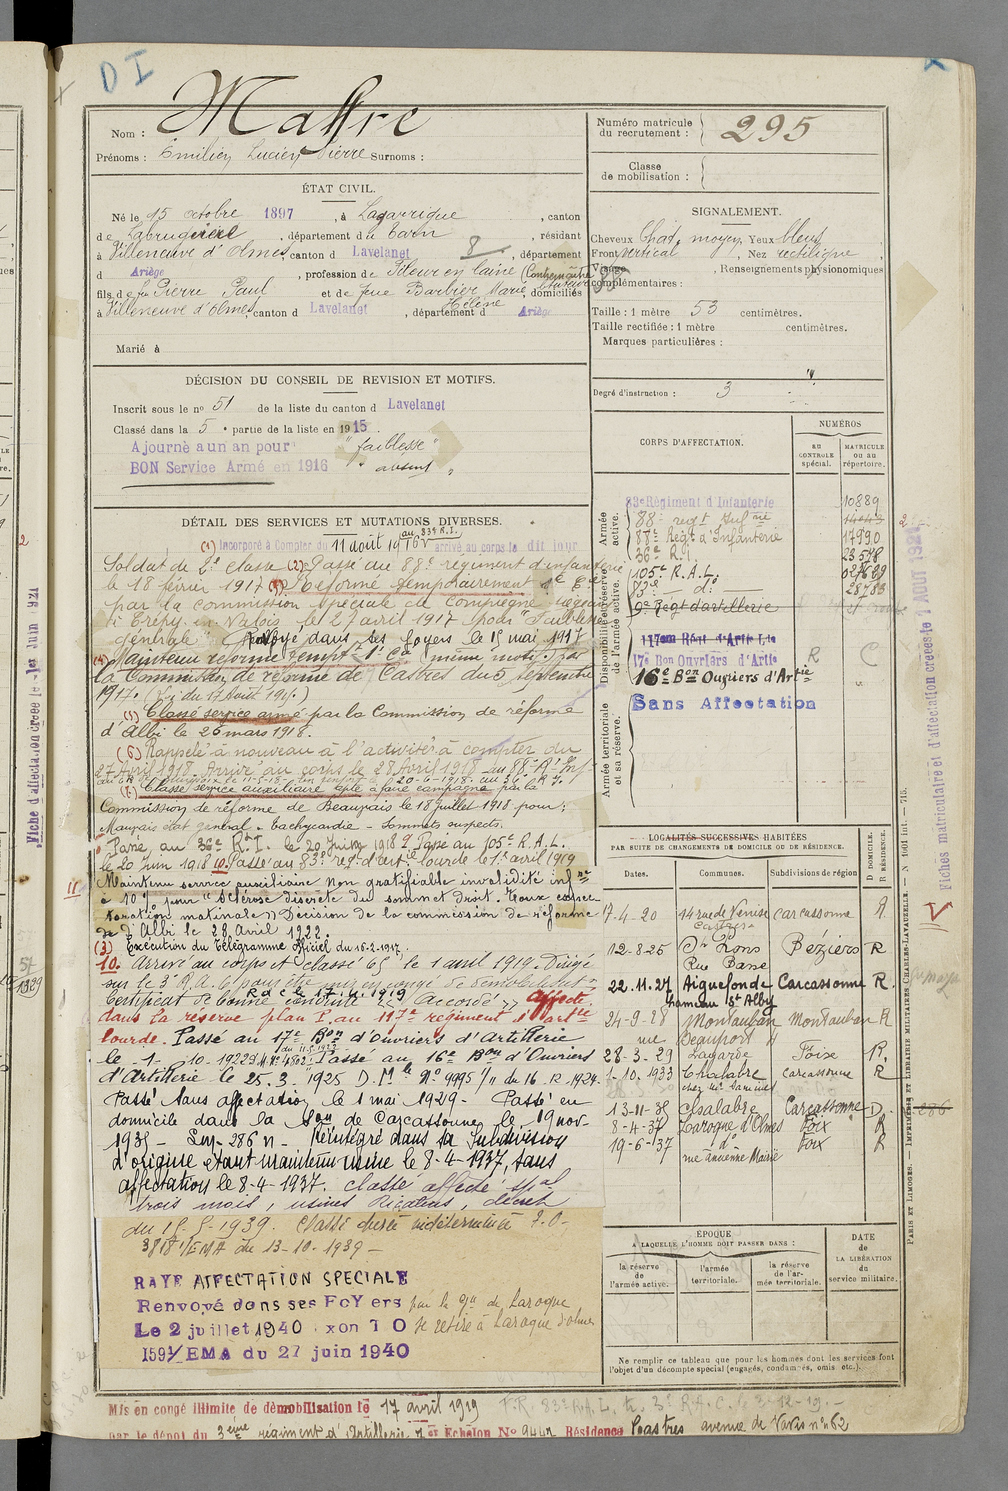 D I
Nom : Maffre
Prénoms : Emilien Lucien Pierre Surnoms :
Numéro matricule du recrutement : 295
Classe de mobilisation :
ÉTAT CIVIL.
Né le 15 octobre 1897, à Lagarrigue, canton
de Labruguière, département du Tarn, résidant
à Villeneuve d'Olmes canton d Lavelanet 8, département
d Ariège, profession de Fileur en laine (Contremaître
fils de feu Pierre Paul et de feue Barbier Marie Hélène, domiciliés
à Villeneuve d'Olmes, canton d Lavelanet, département d Ariège
Marié à
SIGNALEMENT.
Cheveux Chat. moyen Yeux bleus
Front vertical, Nez rectiligne
Visage, Renseignements physionomiques
complémentaires :
Taille : 1 mètre 53 centimètres.
Taille rectifiée : 1 mètre centimètres.
Marques particulières :
Degré d'instruction : 3
DÉCISION DU CONSEIL DE REVISION ET MOTIFS.
Inscrit sous le n° 51 de la liste du canton d Lavelanet
Classé dans la 5e partie de la liste en 1915.
Ajourné a un an pour "faiblesse"
BON Service Armé en 1916 "absent"
CORPS D'AFFECTATION.
NUMÉROS
AU CONTROLE spécial.
MATRICULE ou au répertoire.
Armée active.
Disponibilité et réserve de l'armée active.
Armée territoriale et sa réserve.
83e Régiment d'Infanterie 10889
88e regt Infrie
88e Regt d'Infanterie 17990
36e R.I. 23548
105e R.A.L.
83e - d: - 28783
9e Regt d'artillerie
117em Rént d'Artie Lde
17e Bon Ouvriers d'Artie R C
16e Bon Ouvriers d'Artie
Sans Affectation
DÉTAIL DES SERVICES ET MUTATIONS DIVERSES.
(1) Incorporé à Compter du 11 août 1916 au 83e R.I. arrivé au corps le dit jour
Soldat de 2e classe (2) Passé au 88e régiment d'infanterie
le 18 février 1917 (3) Réformé temporairement
par la commission spéciale de Compiègne siégeant
à Crépy-en-Valois le 27 avril 1917 pour "Faiblesse
générale". Renvoyé dans ses foyers le 15 mai 1917
(4) Maintenu réformé tempre 1e Cie (même motif) par
la Commission de réforme de Castres du 5 septembre
1917. (Loi du 17 Août 191.)
(5) Classé service armé par la Commission de réforme
d'Albi le 26 mars 1918.
(6) Rappelé à nouveau à l'activité à compter du
27 Avril 1918. Arrivé au corps le 28 Avril 1918 au 88e Rt Inf
(7) Classé service auxiliaire apte à faire campagne par la
Commission de réforme de Beauvais le 18 Juillet 1918 pour :
Mauvais état général - tachycardie - Sommets suspects.
Passé au 36e R.I. le 20 Juin 1918 9. Passé au 105e R.A.L.
le 20 juin 1918 10. Passé au 83e reg. d'artie lourde le 1er avril 1919
Maintenu service auxiliaire non gratifiable invalidité infre
à 10% pour "Sclérose discrète du sommet droit. Toux expec-
toration matinale" Décision de la commission de réforme
de d'Albi le 28 Avril 1922.
(3) Exécution du Télégramme officiel du 15-2-1917.
10. Arrivé au corps et classé le 1 avril 1919. Dirigé
sur le 3e R.A.
Certificat de bonne conduite "Accordé" Affecté
dans la réserve plan I au 117e régiment d'artie
lourde. Passé au 17e Bon d'Ouvriers d'Artillerie
le -1- 10-1922. Passé au 16e Bon d'Ouvriers
d'Artillerie le 25.3.1925 D.Mle N° 9995 1/11 du 16.R.1924.
Passé sans affectation le 1 mai 1929 - Passé en
domicile dans la Son de Carcassonne le 19 nov-
1935 - Lm-286 n - Réintégré dans sa Subdivision
d'origine étant maintenu usine le 8-4-1937, sans
affectation le 8-4-1937. Classé affecté spal
trois mois, usines Ricalens, décret
du 15-5-1939. Classé durée indéterminée I.O-
3818 1/EMA du 13-10-1939 -
RAYE AFFECTATION SPECIALE
Renvoyé dans ses FoYers par la Gie de Laroque
Le 2 juillet 1940 xon I O se retire à Laroque d'olmes
1591/EMA du 27 juin 1940
LOCALITÉS SUCCESSIVES HABITÉES
PAR SUITE DE CHANGEMENTS DE DOMICILE OU DE RÉSIDENCE.
Dates. Communes. Subdivisions de région D DOMICILE. R RÉSIDENCE.
7-4-20 14 rue de Venise Castres Carcassonne R
12-8-25 St Pons Rue Basse Béziers R
22.11.27 Aiguefonde hameau St Alby Carcassonne R.
24-9-28 Montauban rue Beauport Montauban R
28-3-29 Lagarde Foix R.
1-10.1933 Chalabre Carcassonne R
13-11-35 Chalabre Carcassonne D. 286
8-4-37 Laroque d'Olmes Foix R
19-6-37 d° rue Ancienne Mairie Foix R
ÉPOQUE
A LAQUELLE L'HOMME DOIT PASSER DANS :
la réserve de l'armée active.
l'armée territoriale.
la réserve de l'armée territoriale.
DATE de LA LIBÉRATION du service militaire.
Ne remplir ce tableau que pour les hommes dont les services font
l'objet d'un décompte spécial (engagés, condamnés, omis etc.).
Mis en congé illimité de démobilisation le 17 avril 1919
par le dépôt du 3ème régiment d'Artillerie Echelon N° Résidence Castres avenue de Paris n° 62
Fiches matriculaire et d'affectation créées le 7 AOUT
PARIS ET LIMOGES. — IMPRIMERIE ET LIBRAIRIE MILITAIRES CHARLES-LAVAUZELLE. — N° 1601 Int. — 715.